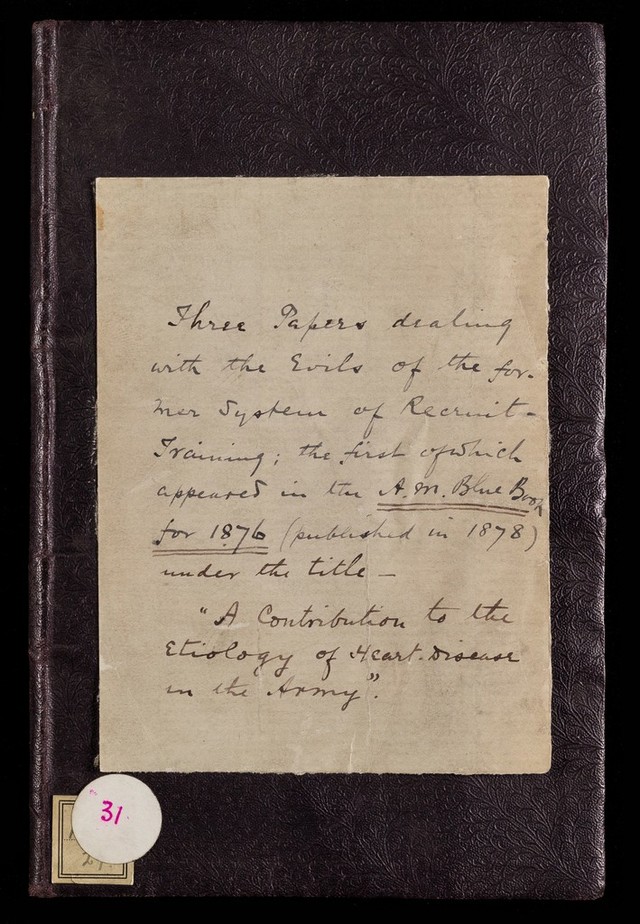 Three Papers dealing
with the Evils of the for-
mer System of Recruit-
Training; the first of which
appeared in the A.M. Blue Book
for 1876 (published in 1878)
under the title —
"A Contribution to the
Etiology of Heart-Disease
in the Army".
31